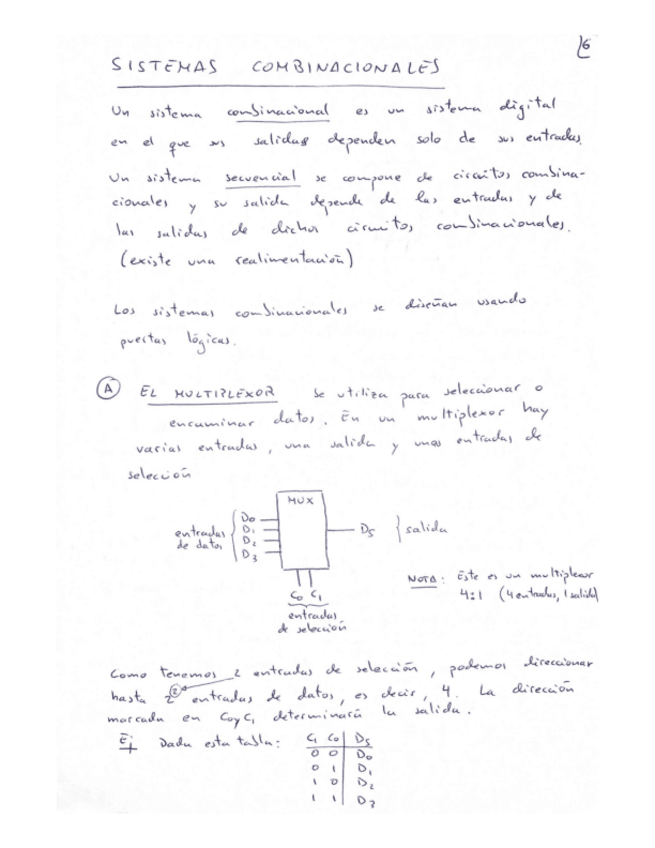 6
SISTEMAS COMBINACIONALES
Un sistema combinacional es un sistema digital
en el que sus salidas dependen solo de sus entradas.
Un sistema secuencial se compone de circuitos combina-
cionales y su salida depende de las entradas y de
las salidas de dichos circuitos combinacionales.
(existe una realimentación)
Los sistemas combinacionales se diseñan usando
puertas lógicas.
A EL MULTIPLEXOR Se utiliza para seleccionar o
encaminar datos. En un multiplexor hay
varias entradas, una salida y unas entradas de
selección
MUX
entradas de datos
D0
D1
D2
D3
DS } salida
C0 C1
entradas
de selección
NOTA: Este es un multiplexor
4:1 (4 entradas, 1 salida)
Como tenemos 2 entradas de selección, podemos direccionar
hasta 2² entradas de datos, es decir, 4. La dirección
marcada en C0 y C1 determinará la salida.
Ej Dada esta tabla:
C1 C0 DS
0 0 D0
0 1 D1
1 0 D2
1 1 D3